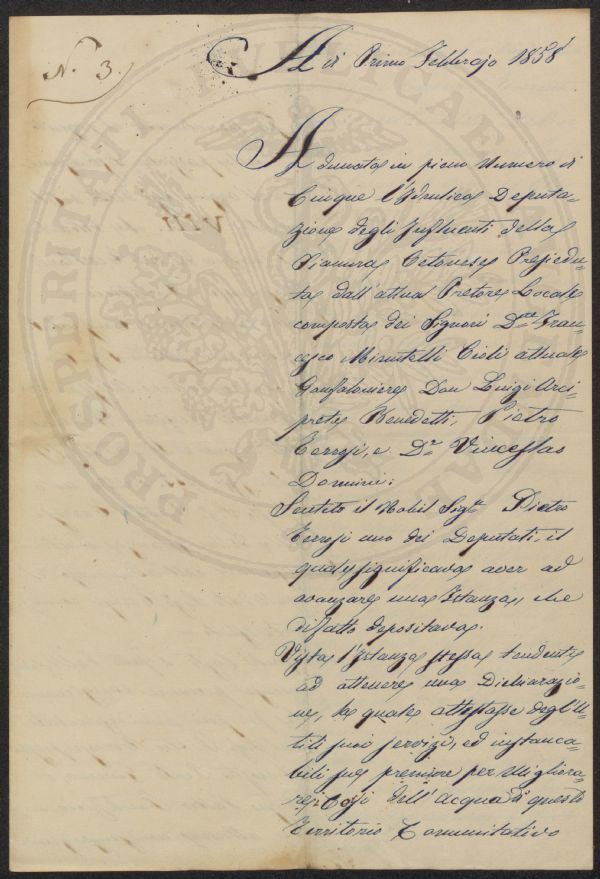 N. 3.
A di Primo Febbrajo 1858
Adunata in pieno Numero di
Cinque l'Idraulica Deputa=
zione degli Influenti della
Pianura Cetonese Presiedu=
ta dall'attual Pretore Locale
composta dei Signori Dre. Fran=
cesco Minutelli Cioli attuale
Gonfaloniere Don Luigi Arci=
prete Benedetti, Pietro
Terrosi, e Dr. Vinceslao
Domini.
Sentito il Nobil Sigre. Pietro
Terrosi uno dei Deputati, il
quale significava aver ad
avanzare una Istanza, che
difatto depositava.
Vista l'Istanza stessa tendente
ad ottenere una Dichiarazio=
ne, la quale attestasse degl'U=
tili suoi servizi, ed instanca=
bili sue premure per Migliora=
re i Corsi dell'acqua di questo
Territorio Comunitativo
VIII
PROSPERITATI PUBLICAE